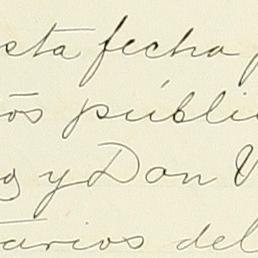 sta fecha
os públi
y Don V
tarios del